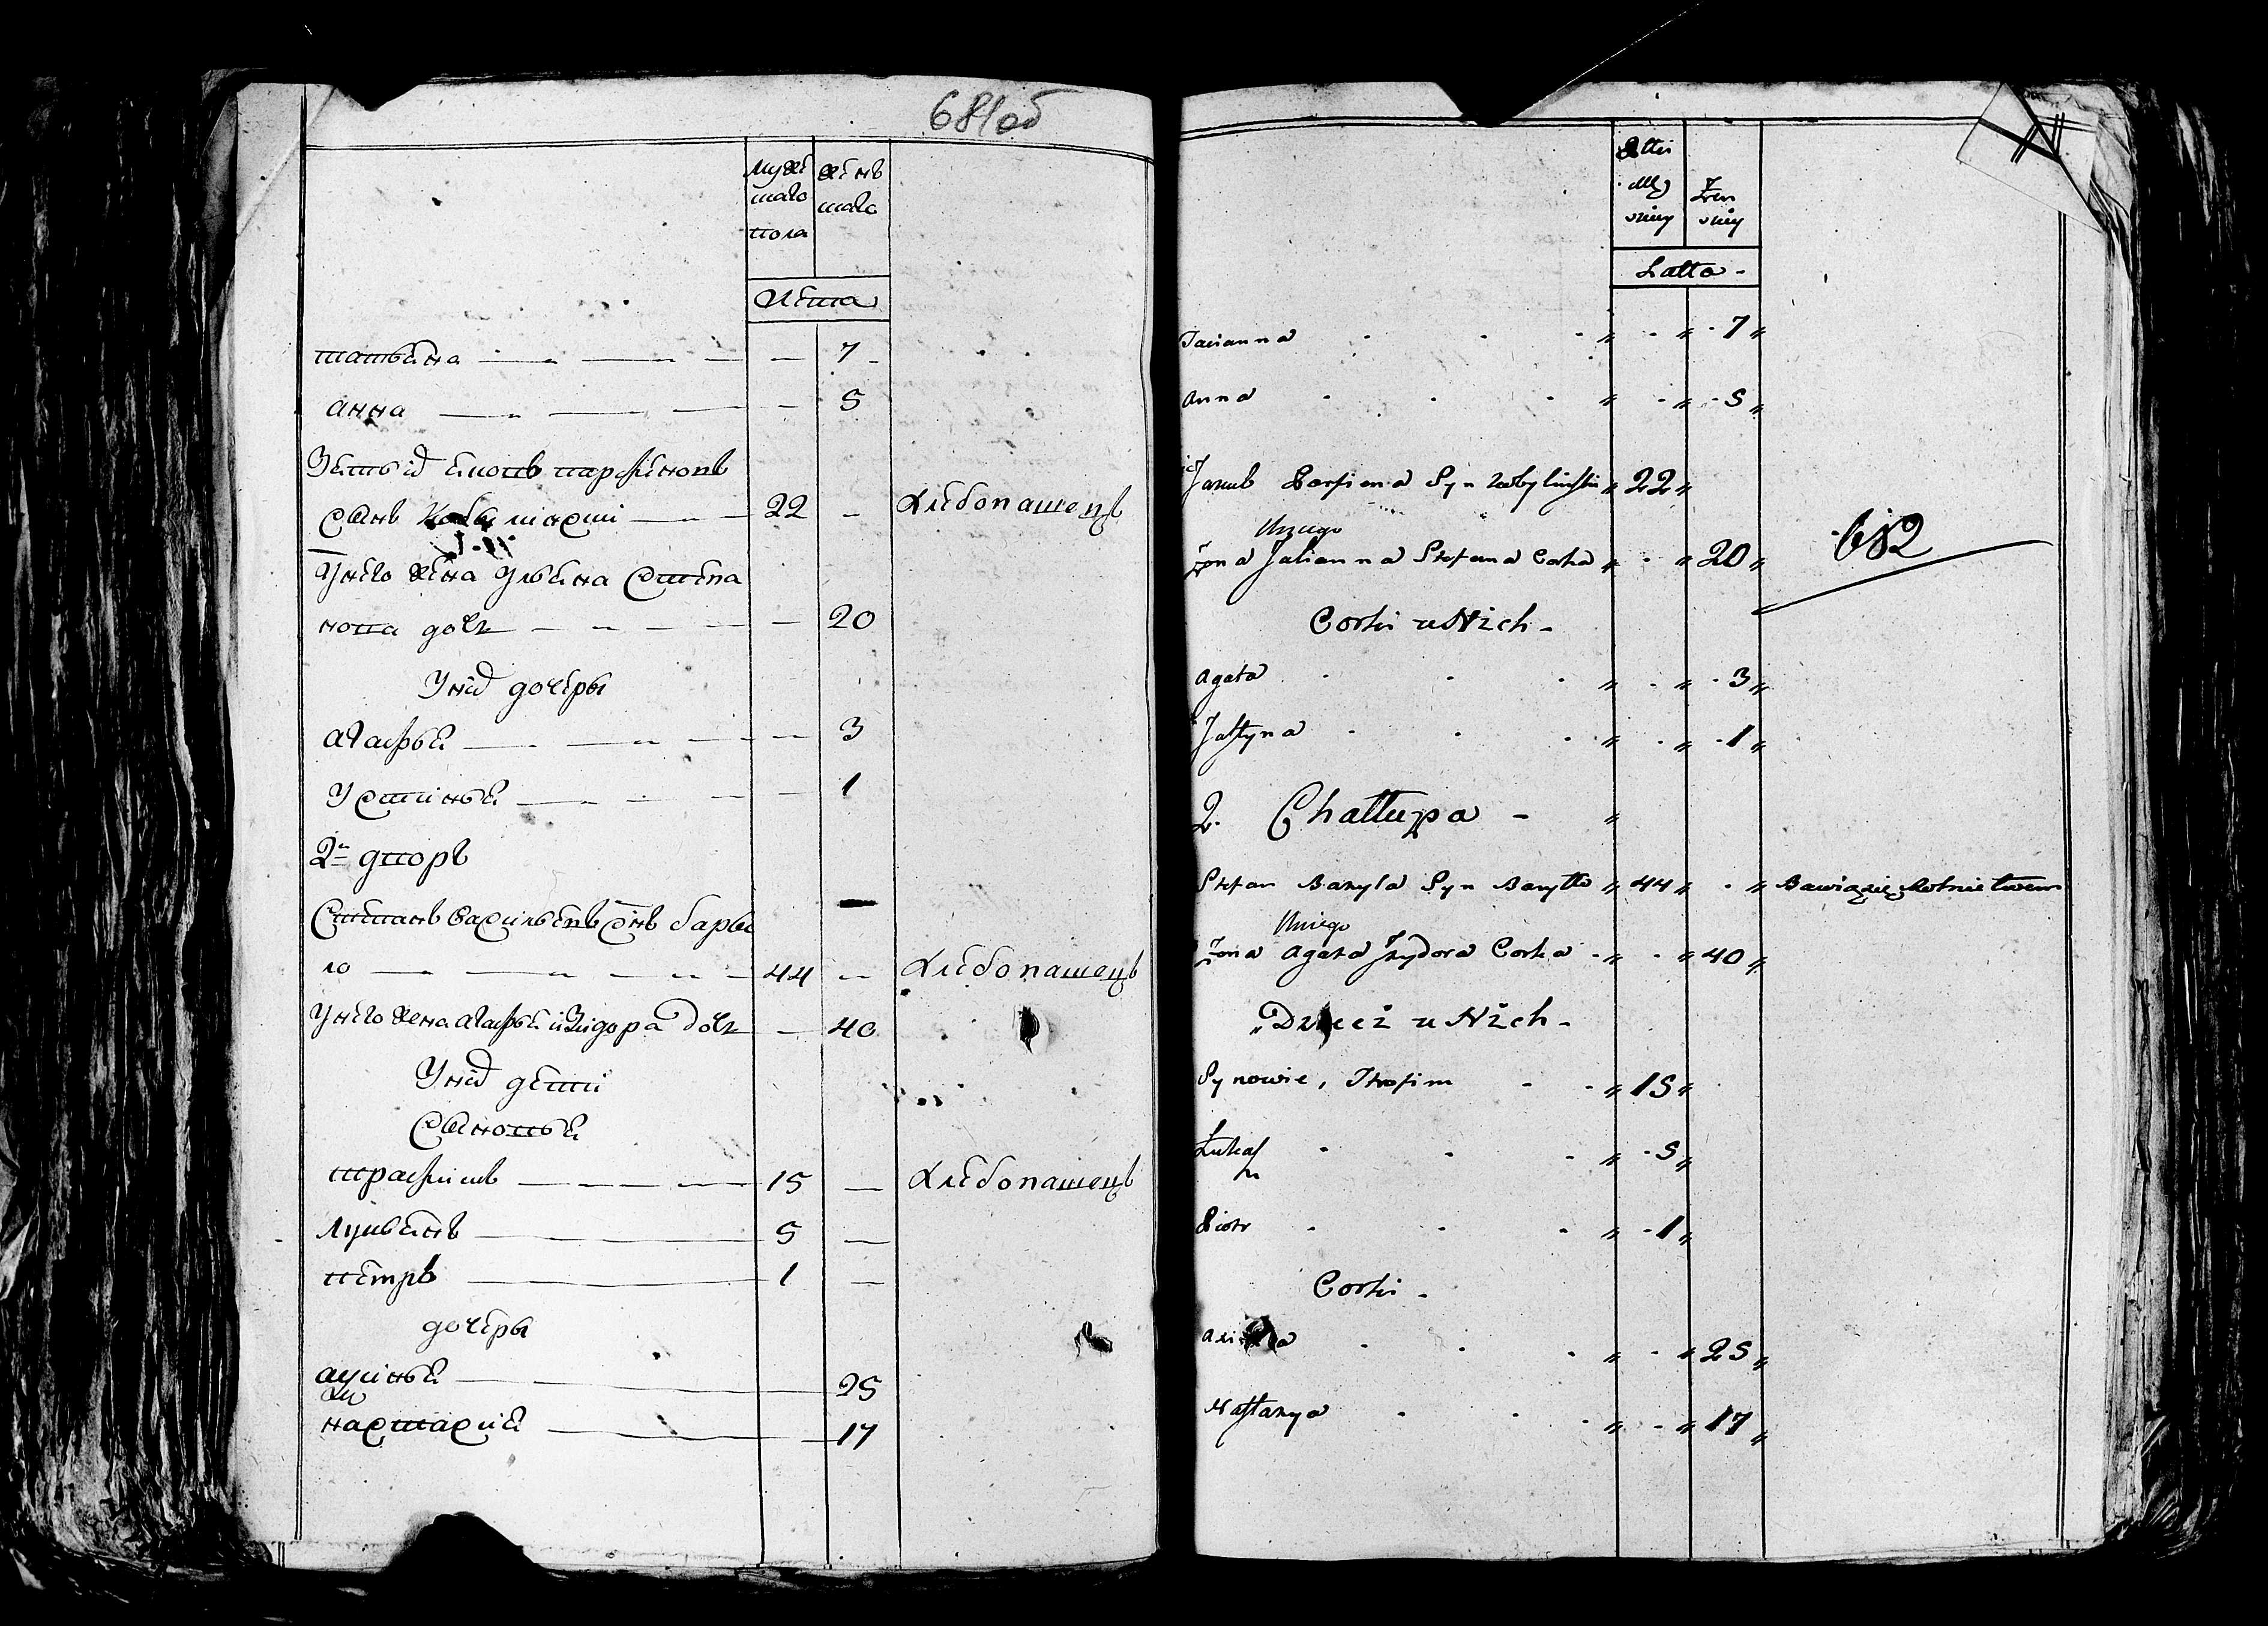 681об
мужескаго пола
женскаго
Лета
татьяна 7
анна 5
Зять их яковъ парфеновъ
сынъ 22 Хлебопашецъ
Унего жена Ульяна Степа
нова дочь 20
Уних дочеры
агафья 3
Устинья 1
2й дворъ
Степанъ Васильевъ Снъ бары
ло 44 Хлебопашецъ
Унего жена агафья Изидора дочь 40
Уних дети
Сыновья
трафимъ 15 Хлебопашецъ
лукьянъ 5
петръ 1
дочеры
25
настасия 17
Żen
skiey
Latta
Tacianna 7
Anna 5
Jakub Parfiena Syn 22
Uniego
Żona Julianna Stefana Corka 20
682
Corki u Nich
Agata 3
Justyna 1
2. Chałłupa
Stefan Bazyla Syn Baryłło 44 Bawiący się Rolnictwem
Uniego
Żona Agata Izydora Corka 40
Dzieci u Nich
Synowie, Trofim 15
Łukasz 5
Piotr 1
Corki
25
Nastazya 17